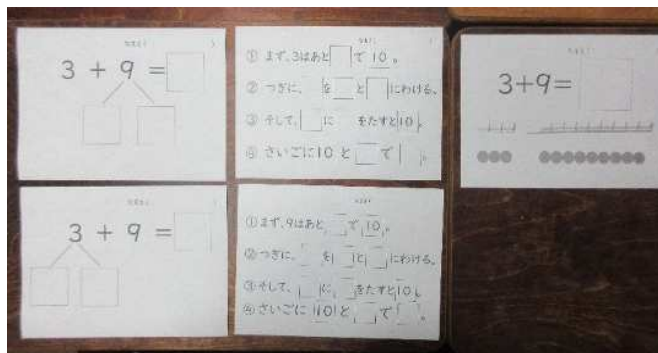 3 + 9 =
① まず、3はあと で 10 。
② つぎに、 を と にわける。
③ そして、 に をたすと 10 。
④ さいごに 10 と で 。
3+9=
3 + 9 =
① まず、9はあと で 10 。
② つぎに、 を と にわける。
③ そして、 に をたすと 10 。
④ さいごに 10 と で 。